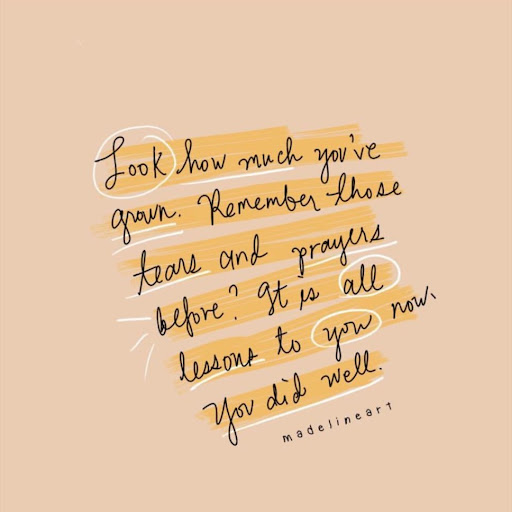 Look how much you've
grown. Remember those
tears and prayers
before? It is all
lessons to you now.
You did well.
madelineart